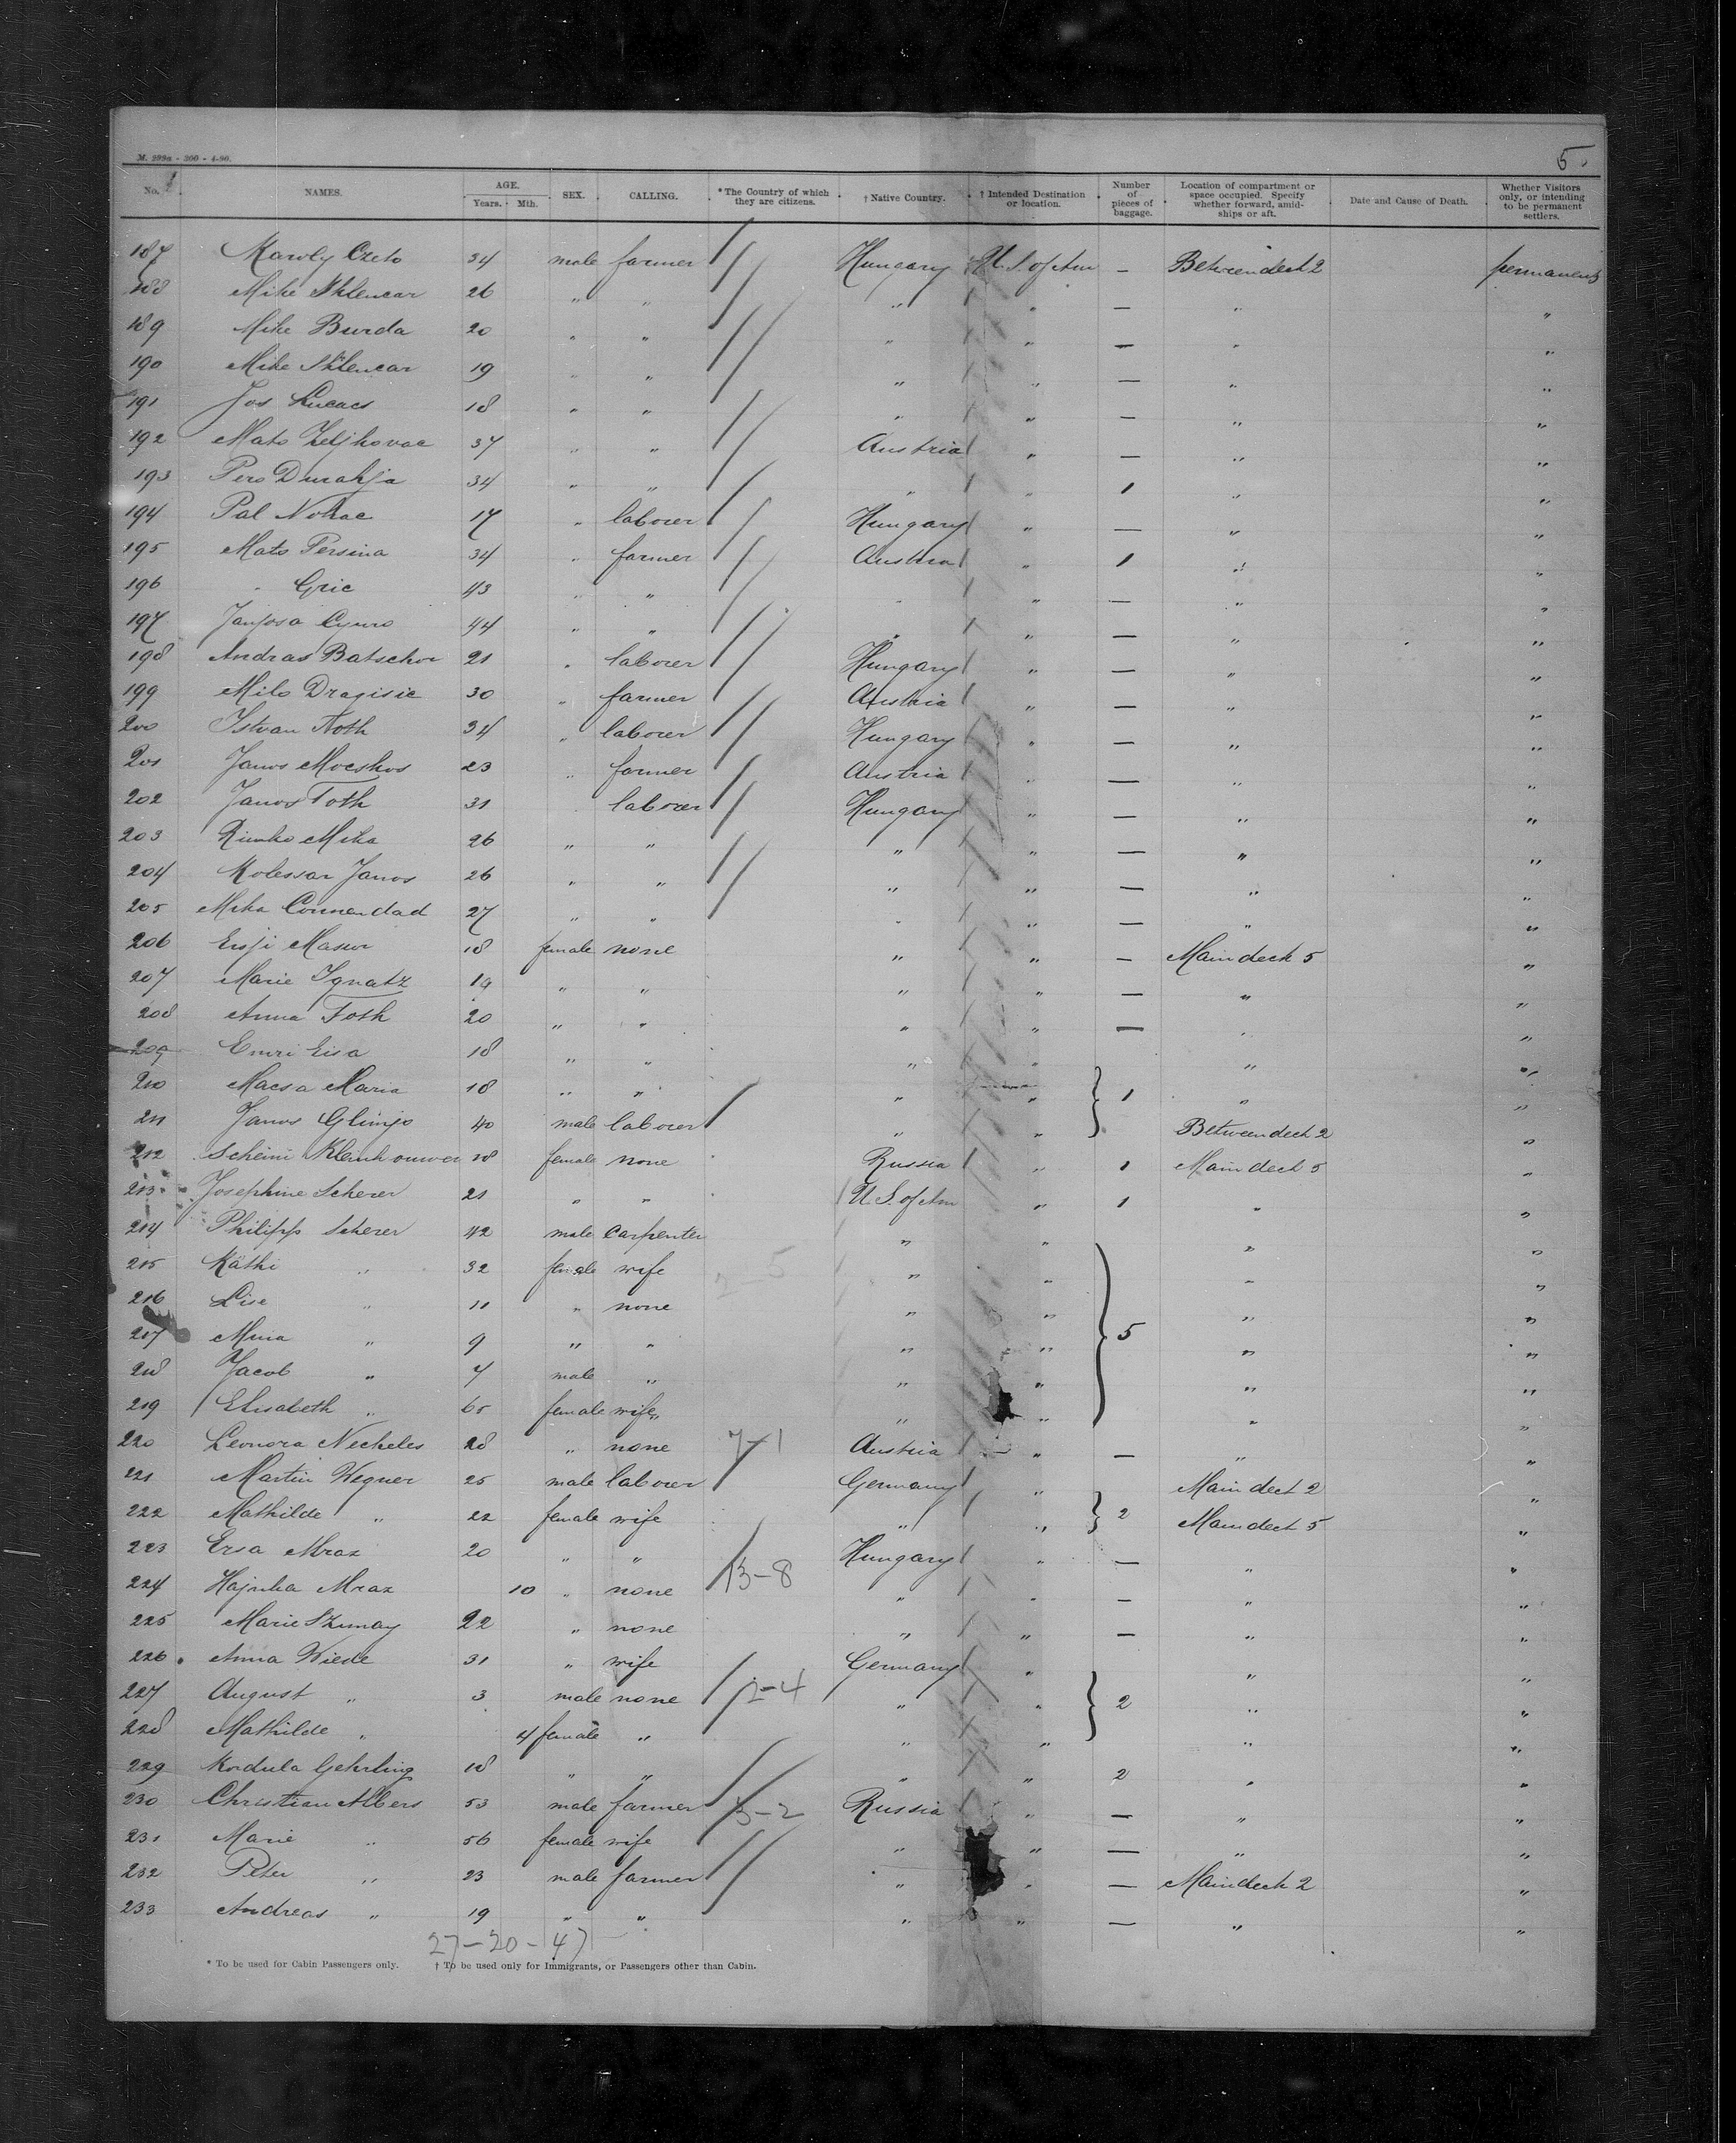 M. 299a - 300 - 4-96.
5
No. NAMES. AGE. Years. Mth. SEX. CALLING. *The Country of which they are citizens. † Native Country. † Intended Destination or location. Number of pieces of baggage. Location of compartment or space occupied. Specify whether forward, amidships or aft. Date and Cause of Death. Whether Visitors only, or intending to be permanent settlers.
187 Karoly Czeto 34 male farmer Hungary U. S. of Am — Betweendeck 2 permanent
188 Mike Sklencar 26 " " " " — " "
189 Mike Burda 20 " " " " — " "
190 Mike Sklencar 19 " " " " — " "
191 Jos Lucacs 18 " " " " — " "
192 Mato Zeljkovac 37 " " Austria " — " "
193 Pero Durakja 34 " " " " 1 " "
194 Pal Novac 17 " laborer Hungary " — " "
195 Mato Persina 34 " farmer Austria " 1 " "
196 " Gric 43 " " " " — " "
197 44 " " " " — " "
198 Andras Batschor 21 " laborer Hungary " — " "
199 Milo Dragisic 30 " farmer Austria " — " "
200 Istvan Toth 34 " laborer Hungary " — " "
201 Janos Mocskos 23 " farmer Austria " — " "
202 Janos Toth 31 laborer Hungary " — " "
203 Mika 26 " " " " — " "
204 Kolessar Janos 26 " " " " — " "
205 Mika Commendad 27 " " " " — " "
206 Masur 18 female none " " — Maindeck 5 "
207 Marie Ignatz 19 " " " " — " "
208 Anna Toth 20 " " " " — " "
209 Emri Lisa 18 " " " " " "
210 Macsa Maria 18 " " " " 1 " "
211 Janos 40 male laborer " " Betweendeck 2 "
212 Scheini 18 female none Russia " 1 Maindeck 5 "
213 Josephine Scherer 21 " " U. S. of Am " 1 " "
214 Philipp Scherer 42 male carpenter " " " "
215 Käthi " 32 female wife " " " "
216 Lise " 11 " none " " " "
217 Mina " 9 " " " " 5 " "
218 Jacob " 7 male " " " " "
219 Elisabeth " 65 female wife " " " "
220 Leonora Necheles 28 " none 7-1 Austria " — " "
221 Martin Wegner 25 male laborer Germany " Maindeck 2 "
222 Mathilde " 22 female wife " " 2 Maindeck 5 "
223 Ersa Mraz 20 " " Hungary " — " "
224 Mraz 10 " none 13-8 " " — " "
225 Marie Szunay 22 " none " " — " "
226 Anna Wiede 31 " wife Germany " " "
227 August " 3 male none 2-4 " " 2 " "
228 Mathilde " 4 female " " " " "
229 Kordula Gehrling 18 " " " " 2 " "
230 Christian Albers 53 male farmer 3-2 Russia " — " "
231 Marie " 56 female wife " " — " "
232 Peter " 23 male farmer " " — Maindeck 2 "
233 Andreas " 19 " " " " — " "
27-20-47
* To be used for Cabin Passengers only. † To be used only for Immigrants, or Passengers other than Cabin.